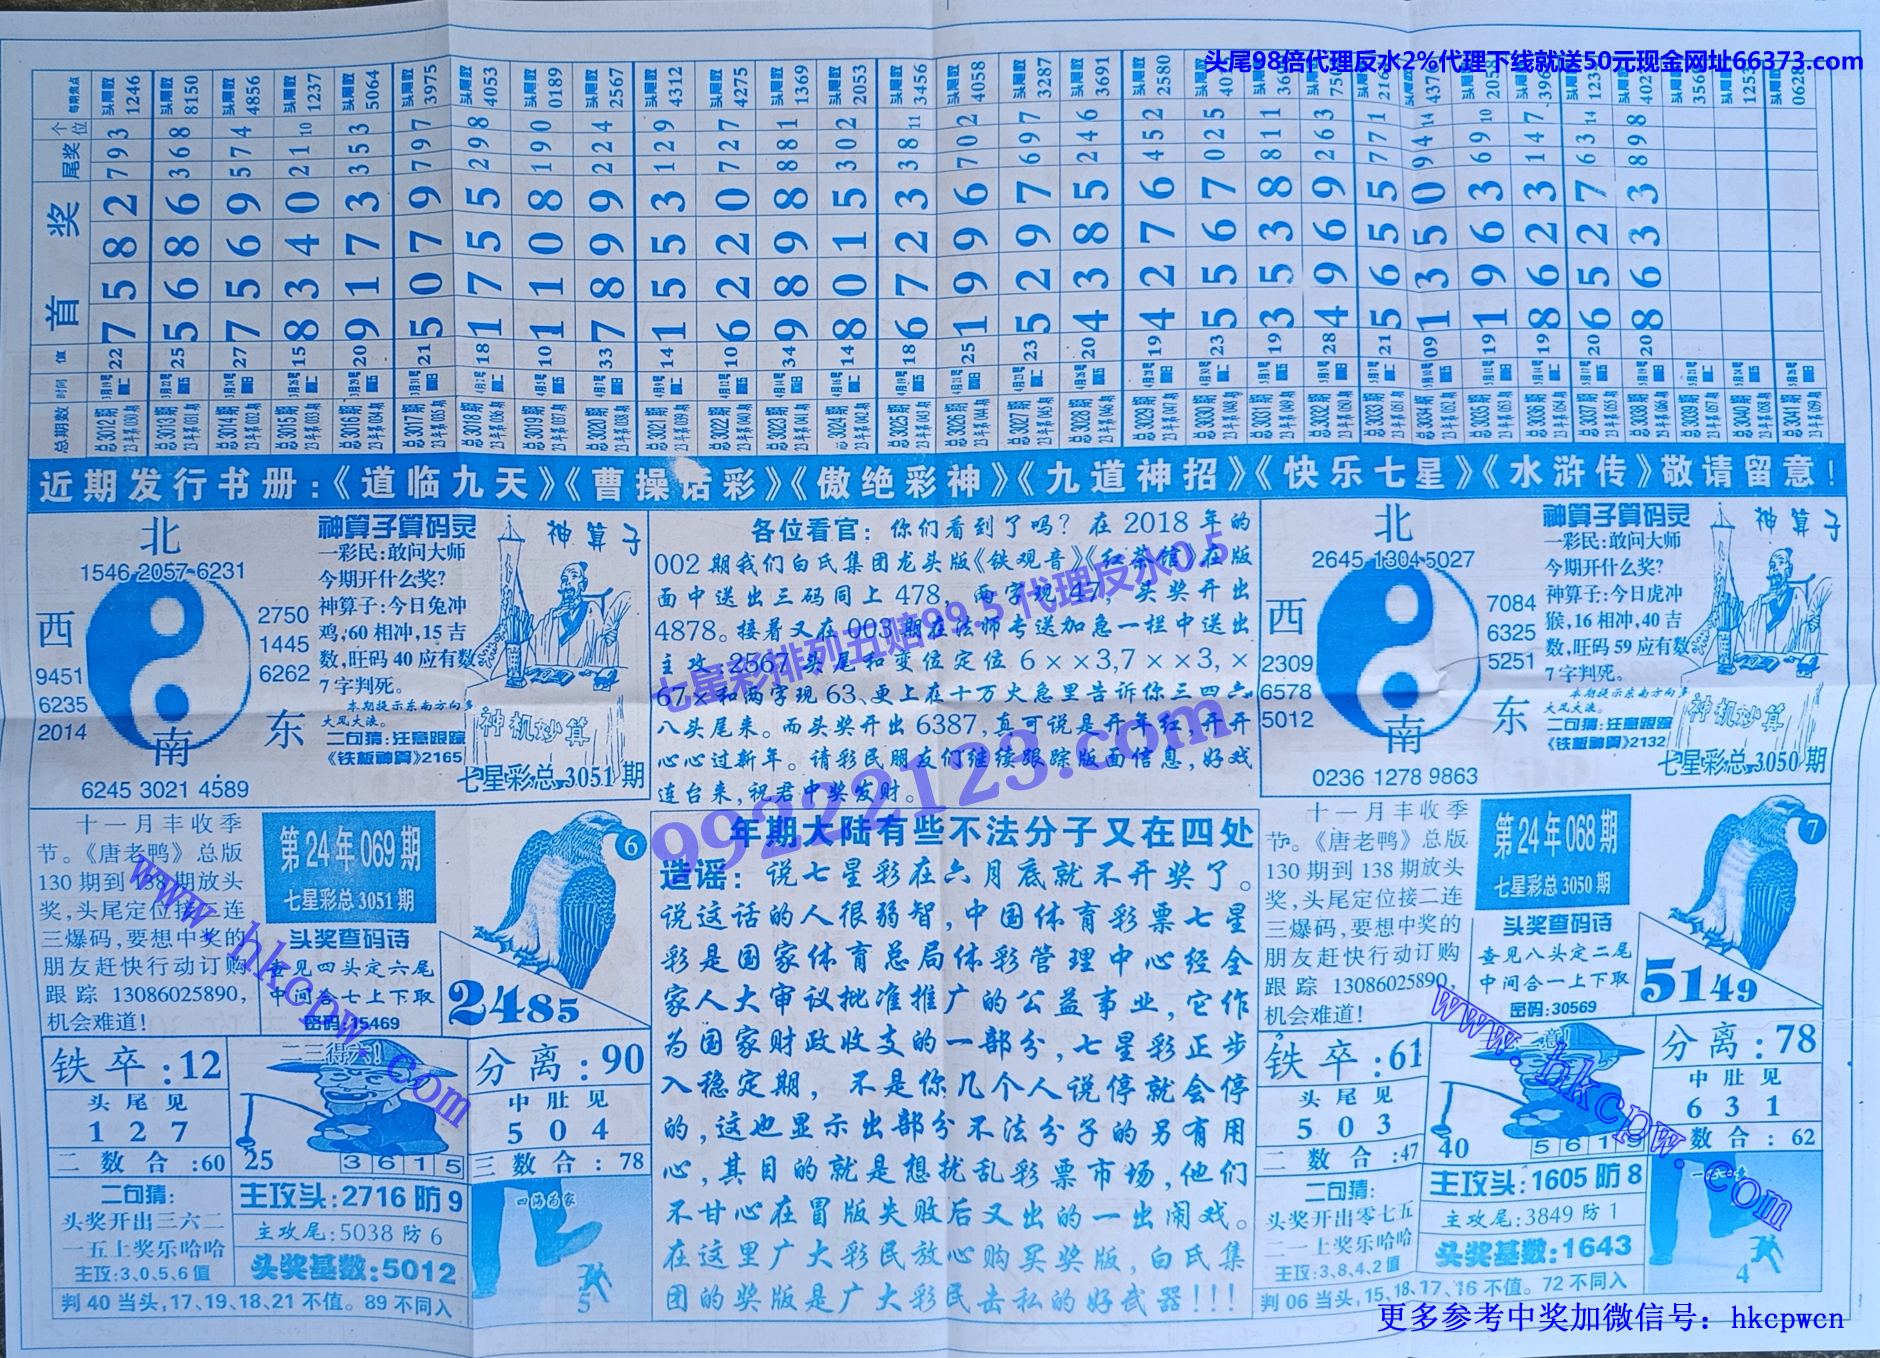 头尾98倍代理反水2%代理下线就送50元现金网址66373.com
每期焦点
头尾数 1246
头尾数 8150
头尾数 4856
头尾数 1237
头尾数 5064
头尾数 3975
头尾数 4053
头尾数 0189
头尾数 2567
头尾数 4312
头尾数 4275
头尾数 1369
头尾数 2053
头尾数 3456
头尾数 4058
头尾数 3287
头尾数 3691
头尾数 2580
个位
尾奖
793
368
574
21 10
353
797
298
190
224
129
727
881
302
38 11
702
697
246
452
025
811
263
771
94 14
69 10
147
63 14
898
首奖
7582
5686
7569
8340
9173
5079
1755
1108
7899
1553
6220
9898
8015
6723
1996
5297
4385
4276
5567
3538
4969
5655
1350
1963
8623
6527
8633
值
22
25
27
15
20
21
18
10
33
14
10
34
14
18
25
23
20
19
23
19
28
21
09
19
19
20
20
时间
总期数
总3012期
总3013期
总3014期
总3015期
总3016期
总3017期
总3018期
总3019期
总3020期
总3021期
总3022期
总3023期
总3024期
总3025期
总3026期
总3027期
总3028期
总3029期
总3030期
总3031期
总3032期
总3033期
总3034期
总3035期
总3036期
总3037期
总3038期
总3039期
总3040期
总3041期
近期发行书册:《道临九天》《曹操话彩》《傲绝彩神》《九道神招》《快乐七星》《水浒传》敬请留意!
北
1546 2057 6231
西
9451
6235
2014
2750
1445
6262
东
南
6245 3021 4589
神算子算码灵
一彩民:敢问大师
今期开什么奖?
神算子:今日兔冲
鸡,60相冲,15吉
数,旺码40应有数
7字判死。
本期提示东南方向多
大风大浪。
二句猜:注意跟踪
《铁板神算》2165
神算子
神机妙算
七星彩总3051期
各位看官：你们看到了吗？在2018年的
002期我们白氏集团龙头版《铁观音》《红茶馆》在版
面中送出三码同上478，两字现47，头奖开出
4878。接着又在003期在法师专送加急一栏中送出
主攻2567头尾和变位定位6××3,7××3,×
67×和两字现63、更上在十万火急里告诉你三四六
八头尾来。而头奖开出6387,真可说是开年红,开开
心心过新年。请彩民朋友们继续跟踪版面信息,好戏
连台来,祝君中奖发财。
七星彩排列五赔99.5代理反水0.5
99222123.com
北
2645 1304 5027
西
2309
6578
5012
7084
6325
5251
东
南
0236 1278 9863
神算子算码灵
一彩民:敢问大师
今期开什么奖?
神算子:今日虎冲
猴,16相冲,40吉
数,旺码59应有数
7字判死。
本期提示东南方向多
大风大浪。
二句猜:注意跟踪
《铁板神算》2132
神算子
神机妙算
七星彩总3050期
十一月丰收季
节。《唐老鸭》总版
130期到138期放头
奖,头尾定位接二连
三爆码,要想中奖的
朋友赶快行动订购
跟踪13086025890,
机会难道!
第24年069期
七星彩总3051期
头奖查码诗
查见四头定六尾
中间合七上下取
密码:15469
6
2485
铁卒:12
头尾见
127
二数合:60
二三得六!
25
3615
分离:90
中肚见
504
三数合:78
二句猜:
头奖开出三六二
一五上奖乐哈哈
主攻:3、0、5、6值
主攻头:2716防9
主攻尾:5038防6
头奖基数:5012
四海为家
5
判40当头,17、19、18、21不值。89不同入
年期大陆有些不法分子又在四处
造谣：说七星彩在六月底就不开奖了。
说这话的人很弱智,中国体育彩票七星
彩是国家体育总局体彩管理中心经全
家人大审议批准推广的公益事业,它作
为国家财政收支的一部分,七星彩正步
入稳定期，不是你几个人说停就会停
的,这也显示出部分不法分子的另有用
心,其目的就是想扰乱彩票市场,他们
不甘心在冒版失败后又出的一出闹戏。
在这里广大彩民放心购买奖版,白氏集
团的奖版是广大彩民击私的好武器!!!
十一月丰收季
节。《唐老鸭》总版
130期到138期放头
奖,头尾定位接二连
三爆码,要想中奖的
朋友赶快行动订购
跟踪13086025890,
机会难道!
第24年068期
七星彩总3050期
头奖查码诗
查见八头定二尾
中间合一上下取
密码:30569
7
5149
铁卒:61
头尾见
503
二数合:47
40
分离:78
中肚见
631
数合:62
二句猜:
头奖开出零七五
二一上奖乐哈哈
主攻:3、8、4、2值
主攻头:1605防8
主攻尾:3849防1
头奖基数:1643
4
判06当头,15、18、17、16不值。72不同入
www.hkcpw.com
www.hkcpw.com
更多参考中奖加微信号：hkcpwcn